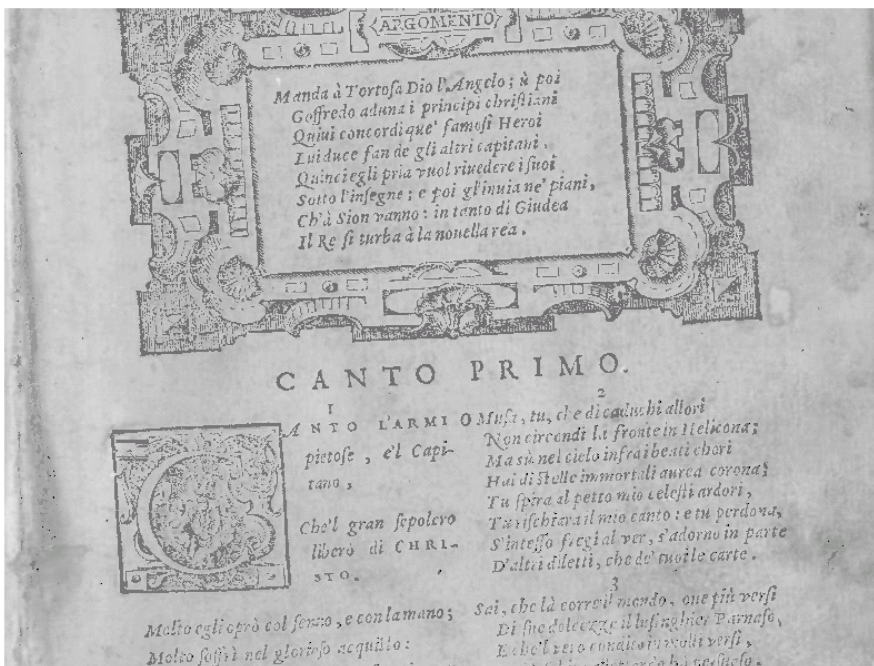 ARGOMENTO
Manda à Tortosa Dio l'Angelo; ù poi
Goffredo aduna i principi christiani
Quiui concordi que' famosi Heroi
Lui duce fan de gli altri capitani.
Quinci egli pria vuol riuedere i suoi
Sotto l'insegne; e poi gl'inuia ne' piani,
Ch'à Sion vanno: in tanto di Giudea
Il Re si turba à la nouella rea.
CANTO PRIMO.
1
CANTO L'ARMI
pietose, e'l Capi-
tano,
Che'l gran sepolcro
liberò di CHRI-
STO.
Molto egli oprò col senno, e con la mano;
Molto soffrì nel glorioso acquisto:
2
O Musa, tu, che di caduchi allori
Non circondi la fronte in Helicona;
Ma sù nel cielo infra i beati chori
Hai di stelle immortali aurea corona;
Tu spira al petto mio celesti ardori,
Tu rischiara il mio canto: e tu perdona,
S'intesso fregi al ver, s'adorno in parte
D'altri diletti, che de' tuoi le carte.
3
Sai, che là corre il mondo, oue più versi
Di sue dolcezze il lusinghier Parnaso,
E che'l vero condito in molli versi,